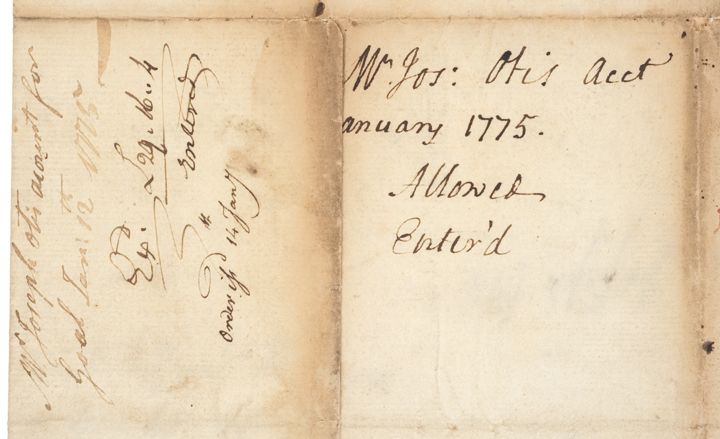 Mr Joseph Otis account for
Goal Jan: 12th 1775
Exd.
£29..16..4
Entered
Order iss 14 Jany
Mr. Jos: Otis Acct
anuary 1775.
Allowed
Enter'd